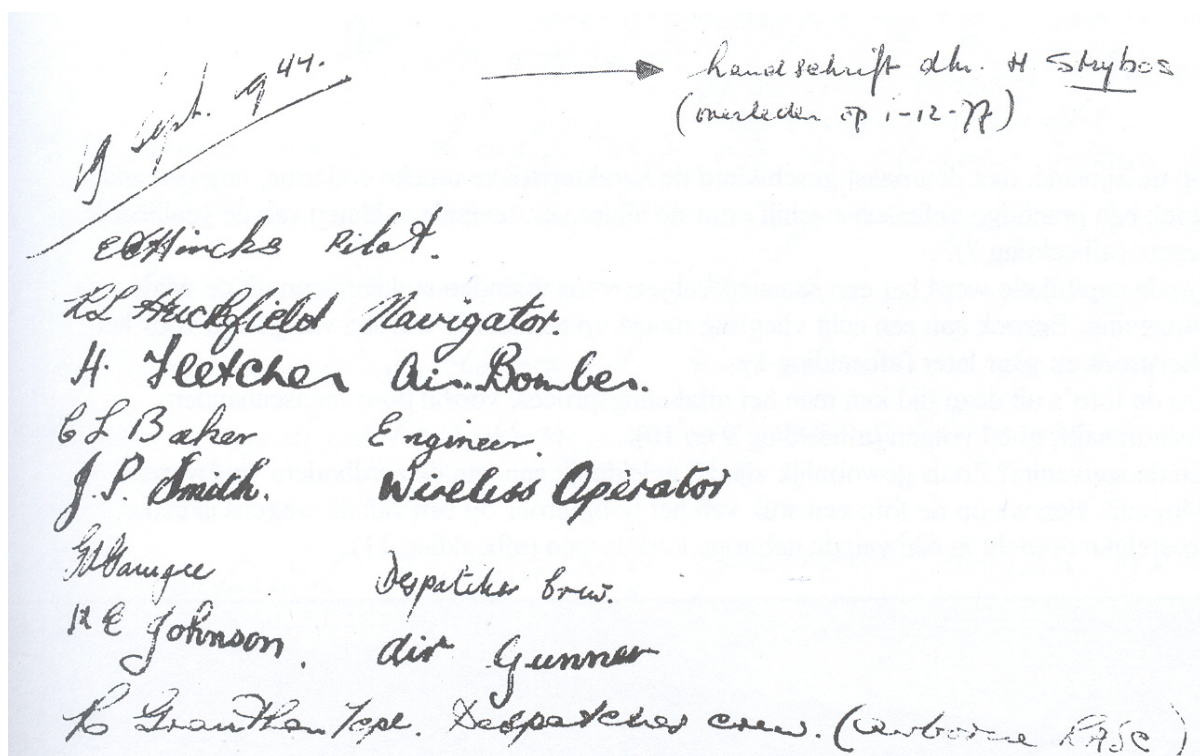 Sept. 9 44.
handschrift dhr. H Strybos
(overleden op 1-12-77)
Hincks Pilot.
R L Huckfield Navigator.
H. Fletcher Air Bomber.
C L Baker Engineer.
J. P. Smith. Wireless Operator
Gamgee Despatcher Crew.
R E Johnson. Air Gunner
Grantham Despatcher crew. (airborne RASC)